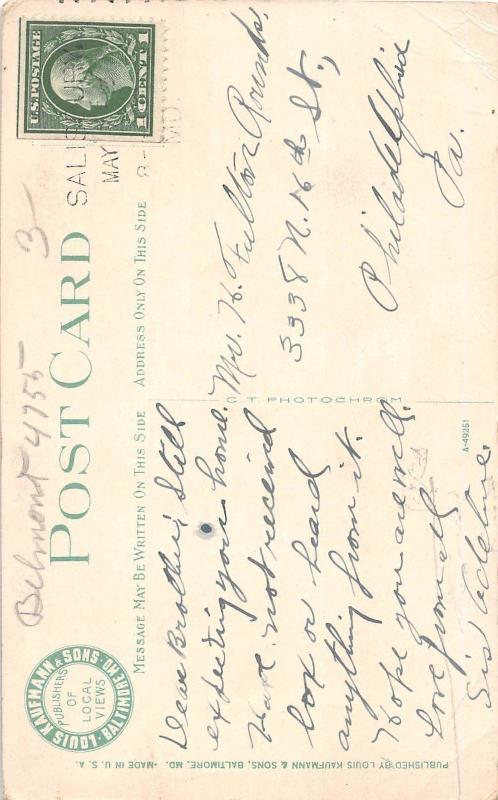 Belmont 4955
3-
POST CARD
MESSAGE MAY BE WRITTEN ON THIS SIDE
ADDRESS ONLY ON THIS SIDE
LOUIS KAUFMANN & SONS · BALTIMORE MD. ·
PUBLISHERS
OF
LOCAL
VIEWS
U.S. POSTAGE
1 CENT 1
SALISBUR
MAY
MD.
Dear Brother; Still
expecting you home.
Have not received
box or heard
anything from it.
Hope you are well.
Love from all
Sis Adeline.
Mr. H. Fulton Rounds.
3338 N. 16th St.,
Philadelphia
Pa.
C.T. PHOTOCHROM
A-49261
PUBLISHED BY LOUIS KAUFMANN & SONS, BALTIMORE, MD. - MADE IN U.S.A.